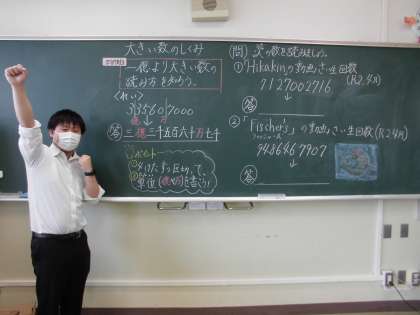 大きい数のしくみ
一億より大きい数の
読み方を知ろう。
(れい)
3|3560|7000
億 万
答 三億三千五百六十万七千
ポイント
① 4けたずつ区切って、
② 単位(億、万)を書こう!
(問) 次の数を読みましょう。
① Hikakinの動画さい生回数
(R2.4月)
7127002716
↓
答
② 「Fischer's」の動画さい生回数(R2.4月)
フィッシャーズ
9486467907
↓
答